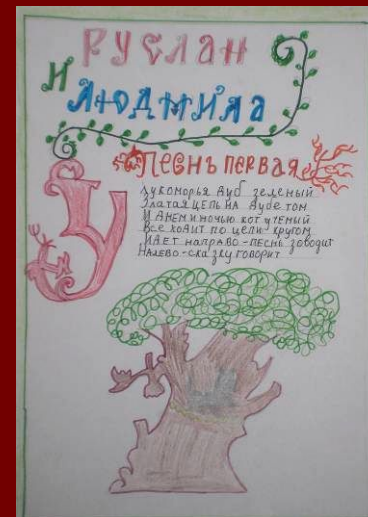 РУСЛАН
И
ЛЮДМИЛА
ПЕСНЬ ПЕРВАЯ
У лукоморья дуб зеленый
Златая цепь на дубе том
И днем и ночью кот ученый
Все ходит по цепи кругом
Идет направо - песнь заводит
Налево - сказку говорит